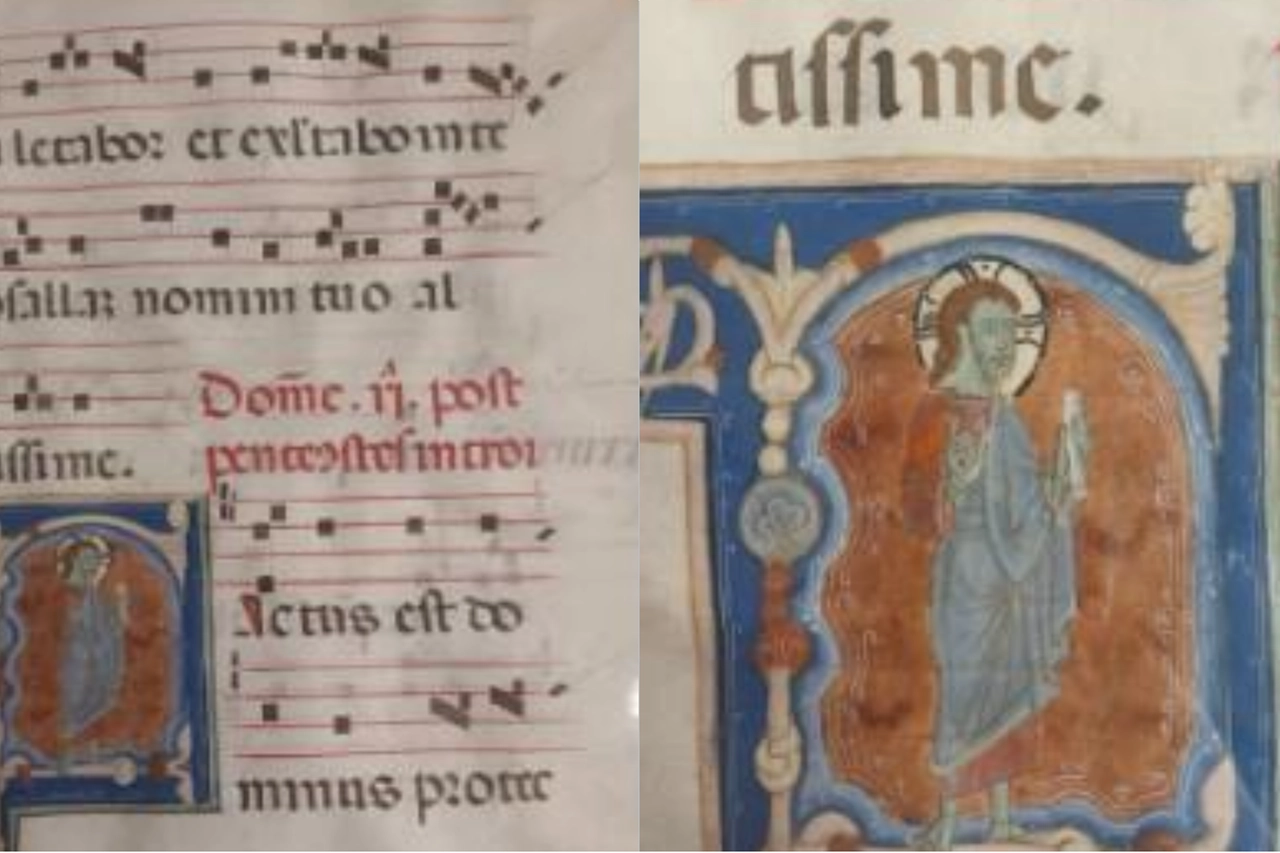 letabor et exultabo in te
psallaʒ nomini tuo al
issime.
Dom̄c . ij. post
pentecostes introi
Actus est do
minus protec
tissime.